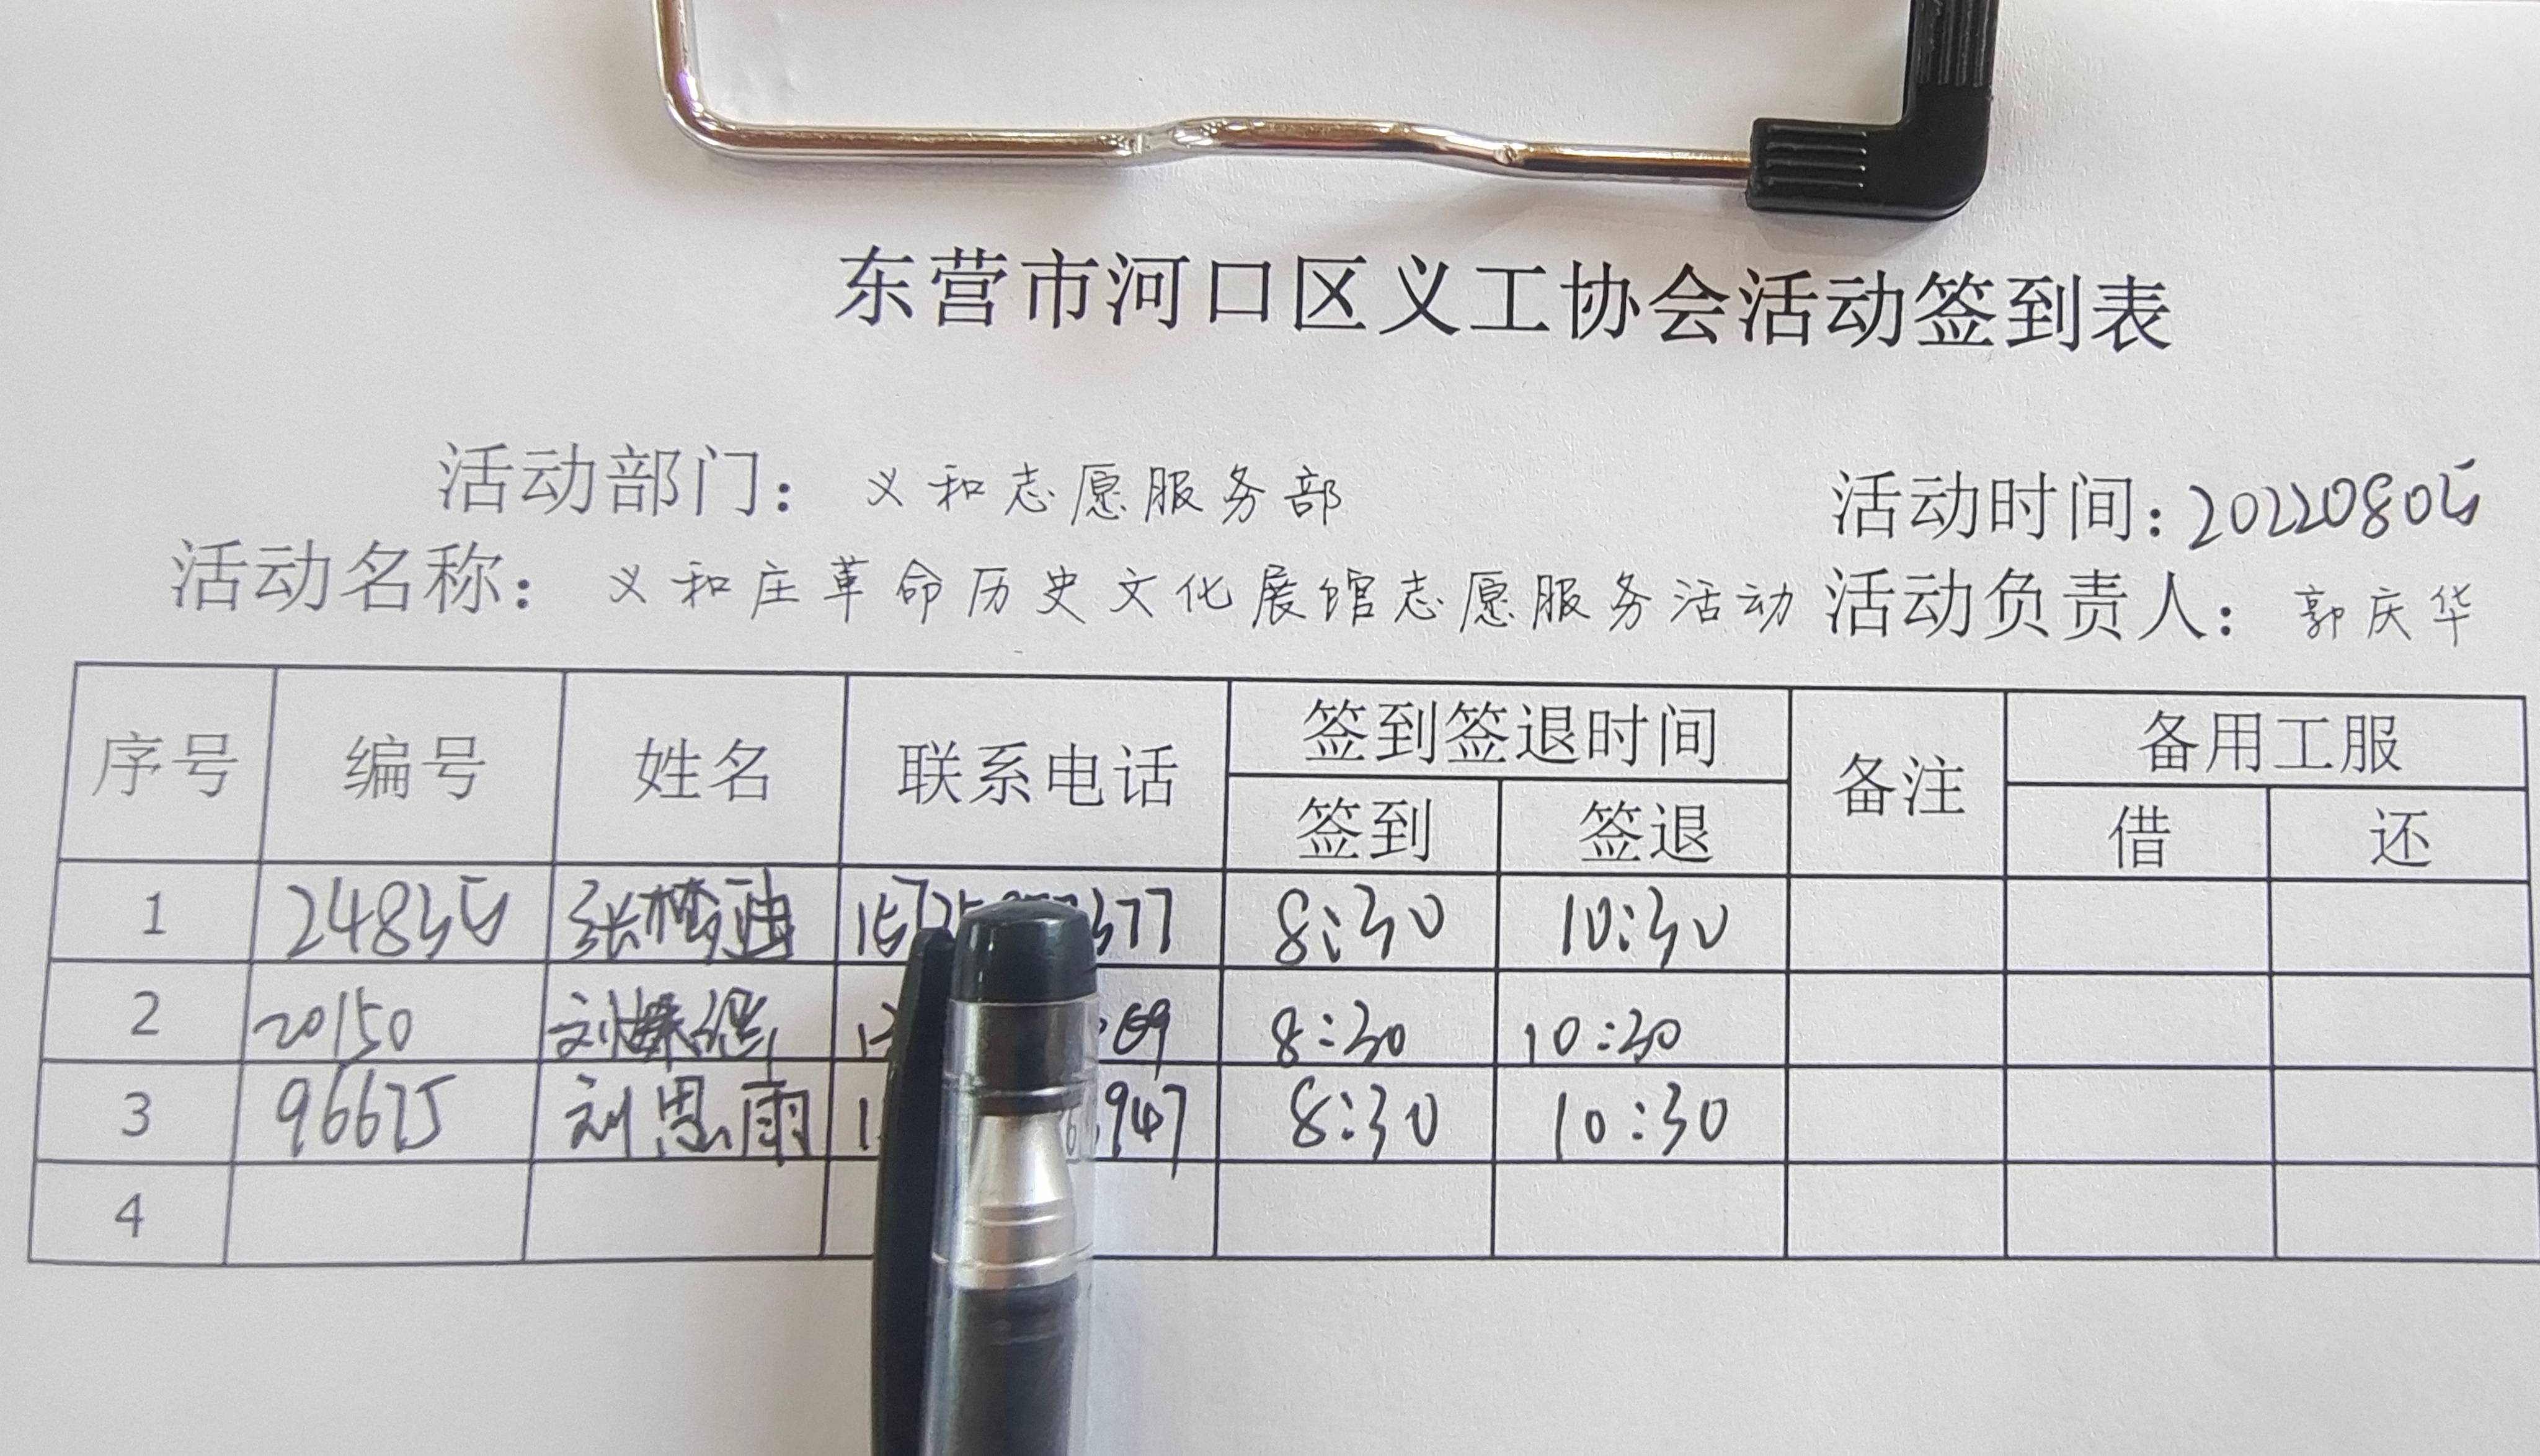 东营市河口区义工协会活动签到表
活动部门：义和志愿服务部 活动时间：20220805
活动名称：义和庄革命历史文化展馆志愿服务活动 活动负责人：郭庆华
序号 编号 姓名 联系电话 签到签退时间 备注 备用工服
签到 签退 借 还
1 24835 张 377 8:30 10:30
2 20150 刘 69 8:30 10:30
3 96675 刘思雨 947 8:30 10:30
4